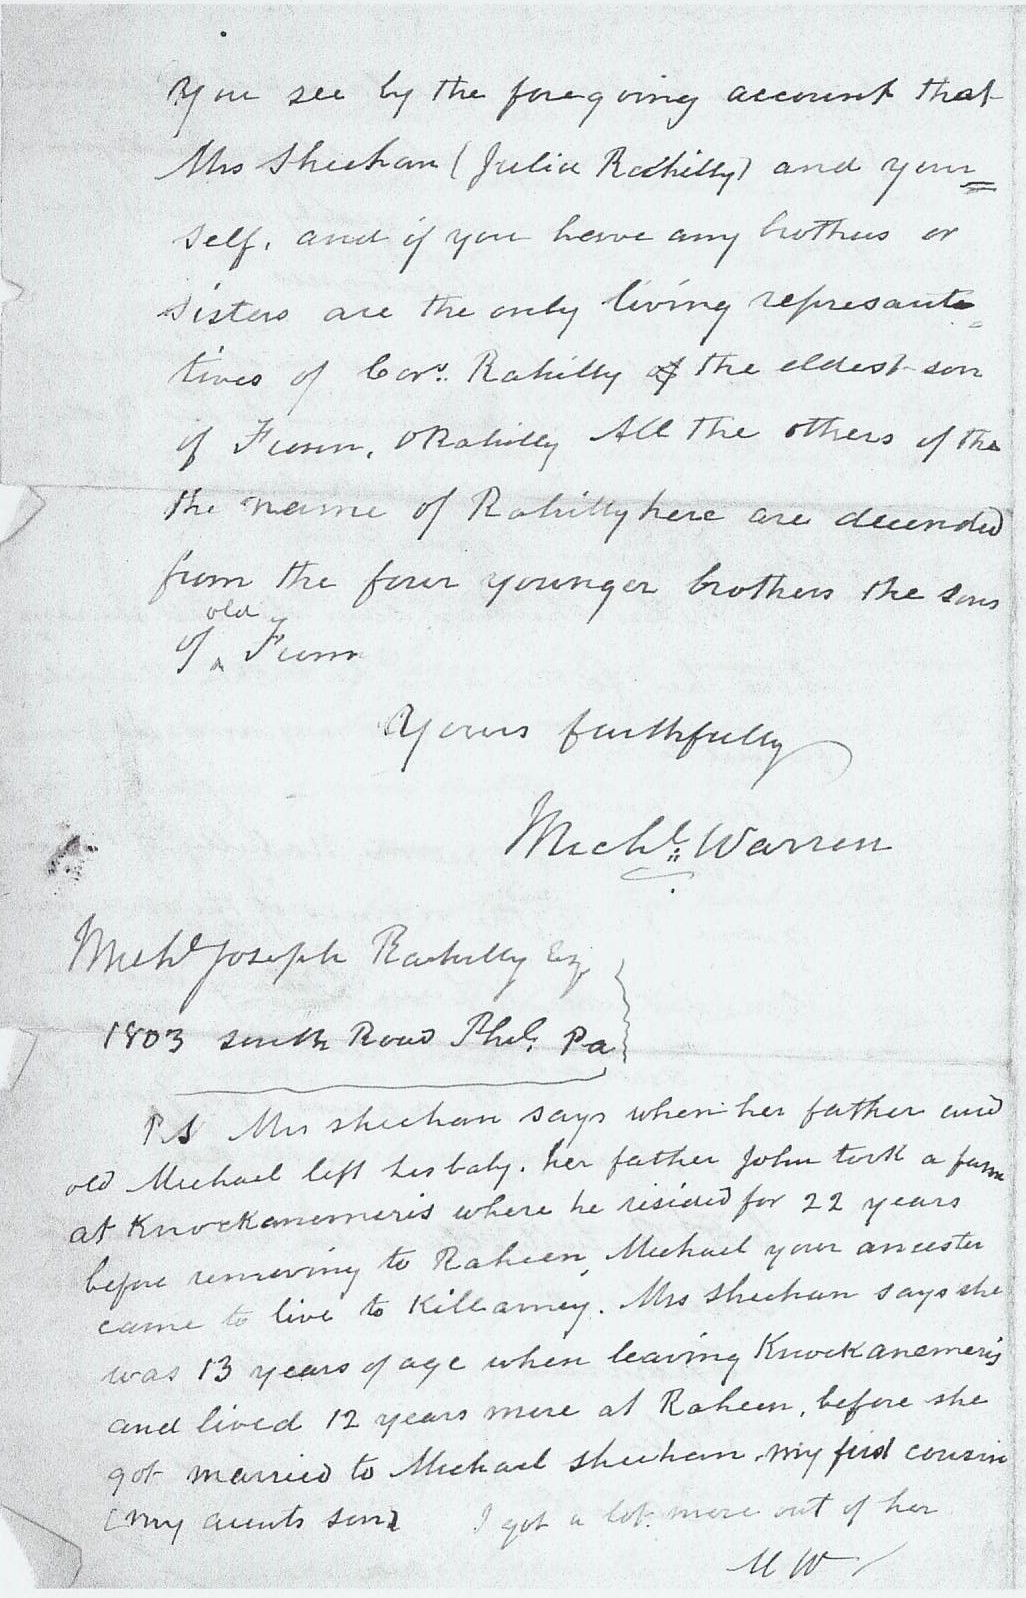 You see by the foregoing account that
Mrs Sheehan (Julia Rahilly) and your=
self, and if you have any brothers or
sisters are the only living represanta-
tives of Cors. Rahilly of the eldest son
of Finnn, ORahilly All the others of the
the name of Rahilly here are decended
from the four younger brothers the sons
of old Finnn
Yours faithfully
Michl. Warren
Michl Joseph Rahilly Esq
1803 south Road Phil. Pa
PS Mrs sheehan says when her father and
old Michael left Lisbaby. her father John took a farm
at Knockanemeris where he resided for 22 years
before removing to Raheen, Michael your ancester
came to live to Killarney. Mrs Sheehan says she
was 13 years of age when leaving Knockanemeris
and lived 12 years more at Raheen, before she
got married to Michael Sheehan. my first cousin
[my aunts son] I got a lot more out of her
M W